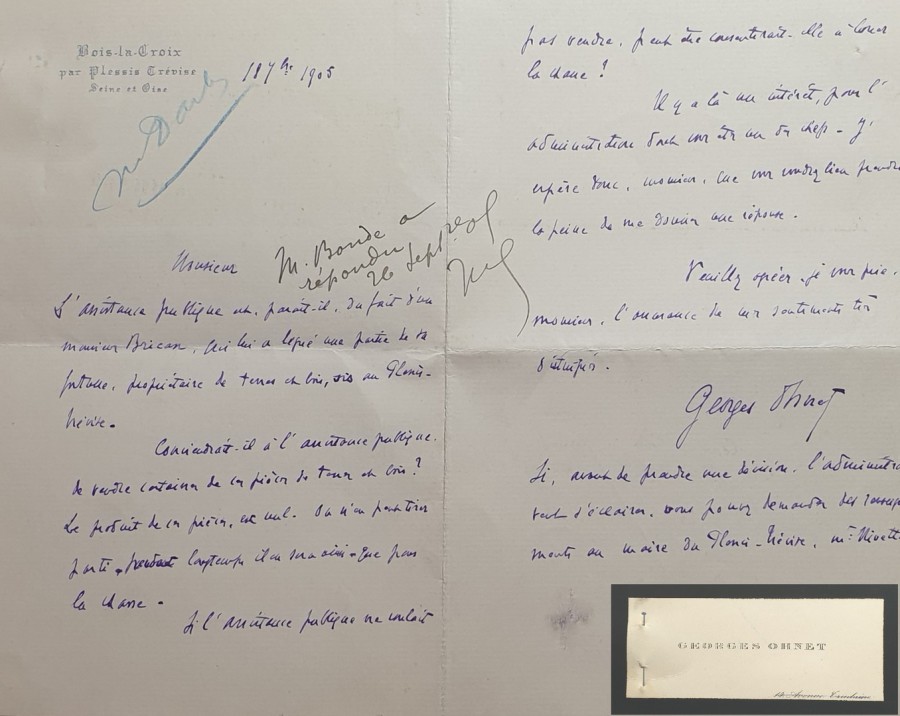 Bois-la-Croix
par Plessis Trévise
Seine et Oise
7bre 1905
M. Bonde a
répondu
26 Septre 05
Monsieur
L'assistance publique est, paraît-il, du fait d'un
monsieur Brican, qui lui a légué une partie de sa
fortune, propriétaire de terres et bois, sis au Plessis-
Trévise.
Conviendrait-il à l'assistance publique,
de vendre certaines de ces pièces de terres et bois?
Le produit de ces pièces, est nul. On n'en peut tirer
parti, pendant longtemps il en sera ainsi, que pour
la chasse.
Si l'assistance publique ne voulait
pas vendre, peut être consentirait-elle à louer
la chasse?
Il y a là un intérêt, pour l'
administration dont vous êtes un des chefs. J'
espère donc, monsieur, que vous voudrez bien prendre
la peine de me donner une réponse.
Veuillez agréer, je vous prie,
monsieur, l'assurance de mes sentiments très
distingués.
Georges Ohnet
Si, avant de prendre une décision, l'administra
veut s'éclairer, vous pouvez demander des renseigne
ments au maire du Plessis-Trévise, Mr
GEORGES OHNET
Avenue Trudaine